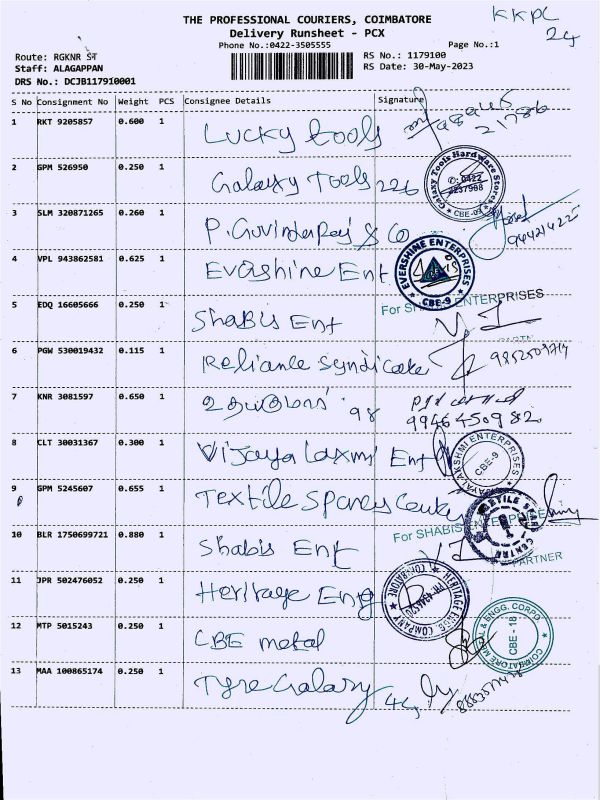 THE PROFESSIONAL COURIERS, COIMBATORE
KKPC
Delivery Runsheet - PCX
24
Phone No.:0422-3505555
Page No.:1
Route: RGKNR ST
RS No.: 1179100
Staff: ALAGAPPAN
RS Date: 30-May-2023
DRS No.: DCJB117910001
S No Consignment No Weight PCS Consignee Details Signature
1 RKT 9205857 0.600 1 Lucky tools
2 GPM 526950 0.250 1 Galaxy Tools 226
Galaxy Tools Hardware Stores
CBE-09
3 SLM 320871265 0.260 1 P. Govindaraj & Co
4 VPL 943862581 0.625 1 Evershine Ent
EVERSHINE ENTERPRISES
CBE-9
5 EDQ 16605666 0.250 1 Shabis Ent
For SHABIS ENTERPRISES
6 PGW 530019432 0.115 1 Reliance Syndicate
9852509714
7 KNR 3081597 0.650 1 98
9946450982
8 CLT 30031367 0.300 1 Vijaya Laxmi Ent
ENTERPRISES
CBE-9
9 GPM 5245607 0.655 1 Textile Spares
10 BLR 1750699721 0.880 1 Shabis Ent
For SHABIS ENTERPRISES
PARTNER
11 JPR 502476052 0.250 1 Heritage Eng
HERITAGE ENGG. COMPANY
COIMBATORE
12 MTP 5015243 0.250 1 CBE metal
COIMBATORE METAL & ENGG. CORPO
CBE - 18
13 MAA 100865174 0.250 1 Tyre Galaxy